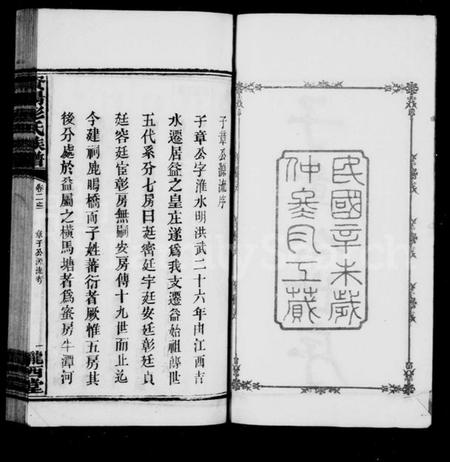 民國辛未歲
仲冬月工蕆
子章公源流序
子章公字淮水明洪武二十六年由江西吉
水遷居益之皇庄遂爲我支遷益始祖傳世
五代系分七房曰廷密廷字廷安廷彰廷貞
廷容廷宦彰房無嗣安房傳十九世而止迄
今建祠鹿鳴橋而子姓蕃衍者厥惟五房其
後分處於益屬之橫馬塘者爲蜜房牛潭河
彭氏族譜
卷二十三
章子公源流考
一
隴西堂